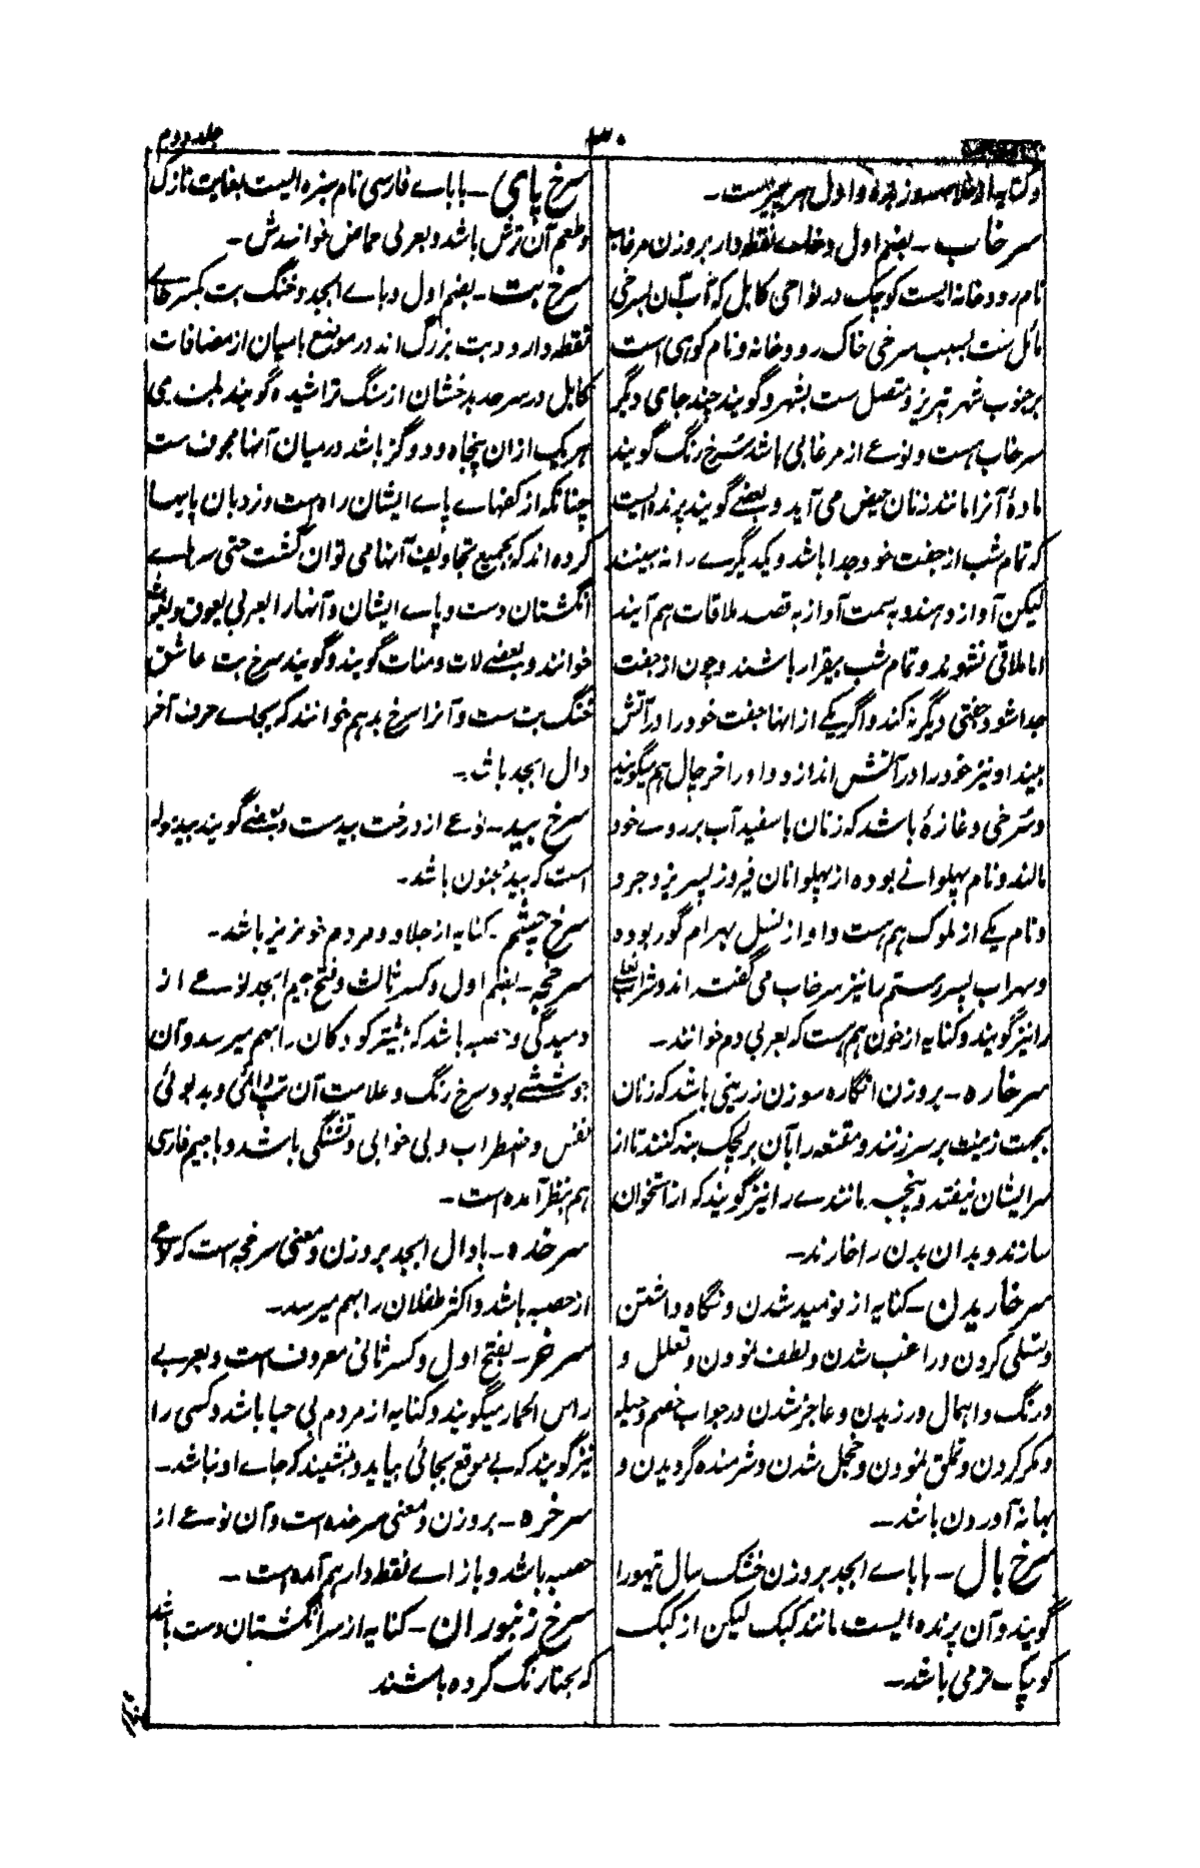 جلد دوم
۳۰
و کنایه از خلاصه و زبده و اول هر چیزیست۔
سرخاب۔ بضم اول و خاے نقطه دار بروزن مرغاب
نام رودخانه ایست کوچک در نواحی کابل که آب آن بسرخی
مائل ست بسبب سرخی خاک رودخانه و نام کوهی است
برجنوب شهر تبریز و متصل ست بشهر و گویند چند جای دیگر
سرخاب هست و نوعے از مرغابی باشد سُرخ رنگ گویند
مادهٔ آنرا مانند زنان حیض می آید و بعضے گویند پرنده ایست
که تمام شب از جفت خود جدا باشد و یکدیگرے را نه بینند
لیکن آواز دهند و بسمت آواز به قصد ملاقات هم آیند
اما ملاقی نشوند و تمام شب بیقرار باشند و چون از جفت
جدا شود جفتی دیگر نه کند و اگر یکے از انها جفت خود را در آتش
بیند او نیز خود را در آتش اندازد و او را خرچال هم میگویند
و سُرخی و غازهٔ باشد که زنان با سفیدآب بر روے خود
مالند و نام پهلوانے بوده از پهلوانان فیروز پسر یزدجرد
و نام یکے از ملوک هم هست و او از نسل بهرام گور بوده
و سهراب پسر رستم را نیز سرخاب می گفته اند و شراب لعلی
را نیز گویند و کنایه از خون هم هست که بعربی دم خوانند۔
سرخاره۔ بروزن انگاره سوزن زرینی باشد که زنان
بجهت زینت بر سر زنند و مقنعه را بآن بر لچک بند کنند تا از
سر ایشان نیفتد و پنجه مانندے را نیز گویند که از استخوان
سازند و بدان بدن را خارند۔
سرخاریدن۔ کنایه از نومید شدن و نگاه داشتن
و تسلی کردن و راغب شدن و لطف نمودن و تعلل و
درنگ و اهمال ورزیدن و عاجز شدن در جواب خصم و حیله
و مکر کردن و تملق نمودن و خجل شدن و شرمنده گردیدن و
بهانه آوردن باشد۔
سُرخ بال۔ با باے ابجد بروزن خشک سال تیهو را
گویند و آن پرنده ایست مانند کبک لیکن از کبک
کوچک تر می باشد۔
سُرخ پای۔ با باے فارسی نام سبزه ایست بغایت نازک
و طعم آن ترش باشد و بعربی حماض خوانندش۔
سُرخ بت۔ بضم اول و باے ابجد و خنگ بت بکسر خاے
نقطه دار و دو بت بزرگ اند در موضع بامیان از مضافات
کابل در سرحد بدخشان از سنگ تراشیده گویند بلندی
هر یک ازان پنجاه و دو گز باشد درمیان آنها مجوف ست
چنانکه از کفهاے پاے ایشان راه هست و نردبان پایها
کرده اند که بجمیع تجاویف آنها می توان گشت حتی سرهاے
انگشتان دست و پاے ایشان و آنها را بعربی یعوق و یغوث
خوانند و بعضے لات و منات گویند و گویند سرخ بت عاشق
خنگ بت ست و آنرا سرخ بد هم خوانند که بجاے حرف آخر
دال ابجد باشد۔
سُرخ بید۔ نوعے از درخت بیدست و بعضے گویند بیدموله
است که بید مجنون باشد۔
سُرخ چشم۔ کنایه از جلاد و مردم خونریز باشد۔
سرخجه۔ بضم اول و کسر ثالث و فتح جیم ابجد نوعے از
دمیدگی و حصبه باشد که بیشتر کودکان را بهم میرسد و آن
جوششے بود سرخ رنگ و علامت آن تب دائمی و بدبوئی
نفس و اضطراب و بی خوابی و تشنگی باشد و با جیم فارسی
هم بنظر آمده است۔
سرخده۔ با دال ابجد بروزن و معنی سرخجه است که نوعے
از حصبه باشد و اکثر طفلان را بهم میرسد۔
سرخر۔ بفتح اول و کسر ثانی معروف است و بعربے
راس الحمار میگویند و کنایه از مردم بی حیا باشد و کسی را
نیز گویند که بے موقع بجائی بیاید و بنشیند که جاے او نباشد۔
سرخره۔ بروزن و معنی سرخده است و آن نوعے از
حصبه باشد و با زاے نقطه دار هم آمده است۔
سُرخ زنبوران۔ کنایه از سرانگشتان دست باشد
که بحنا رنگ کرده باشند